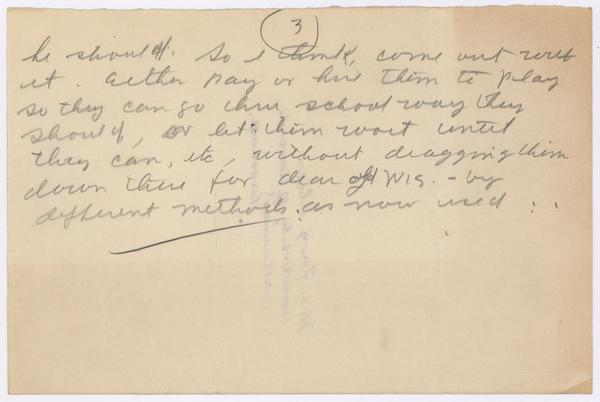 3
he should. So I think, come out with
it. Either pay or hire them to play
so they can go thru school way they
should, or let them wait until
they can, etc, without dragging them
down there for dear old Wis. - by
different methods. as now used :